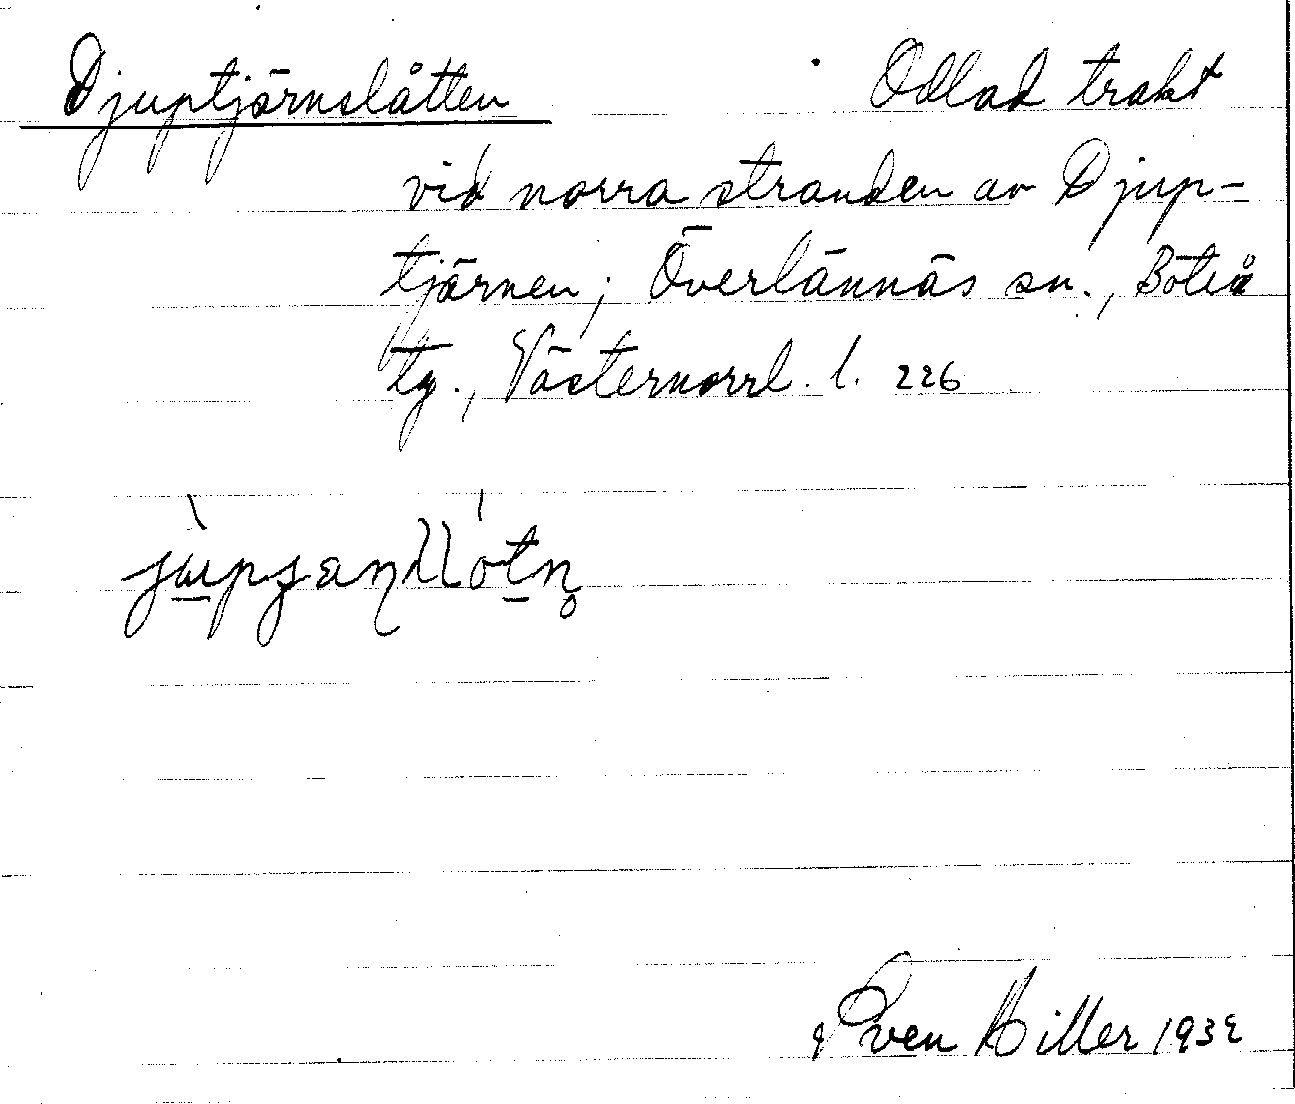 Djuptjärnslåtten Odlad trakt
vid norra stranden av Djup-
tjärnen; Överlännäs sn., Boteå
tg., Västernorrl. l. 226
Sven Hiller 1932